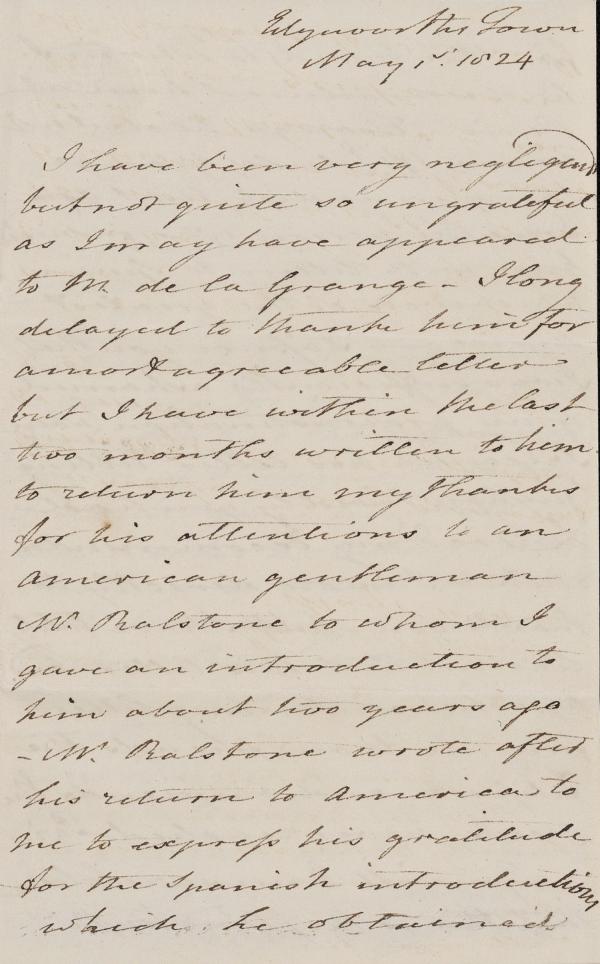 Edgeworths Town
May 1st. 1824
I have been very negligent
but not quite so ungrateful
as I may have appeared
to M. de la Grange - I long
delayed to thank him for
a most agreeable letter
but I have within the last
two months written to him
to return him my thanks
for his attentions to an
American gentleman
Mr. Ralstone to whom I
gave an introduction to
him about two years ago
- Mr. Ralstone wrote after
his return to America to
me to express his gratitude
for the Spanish introductions
which he obtained